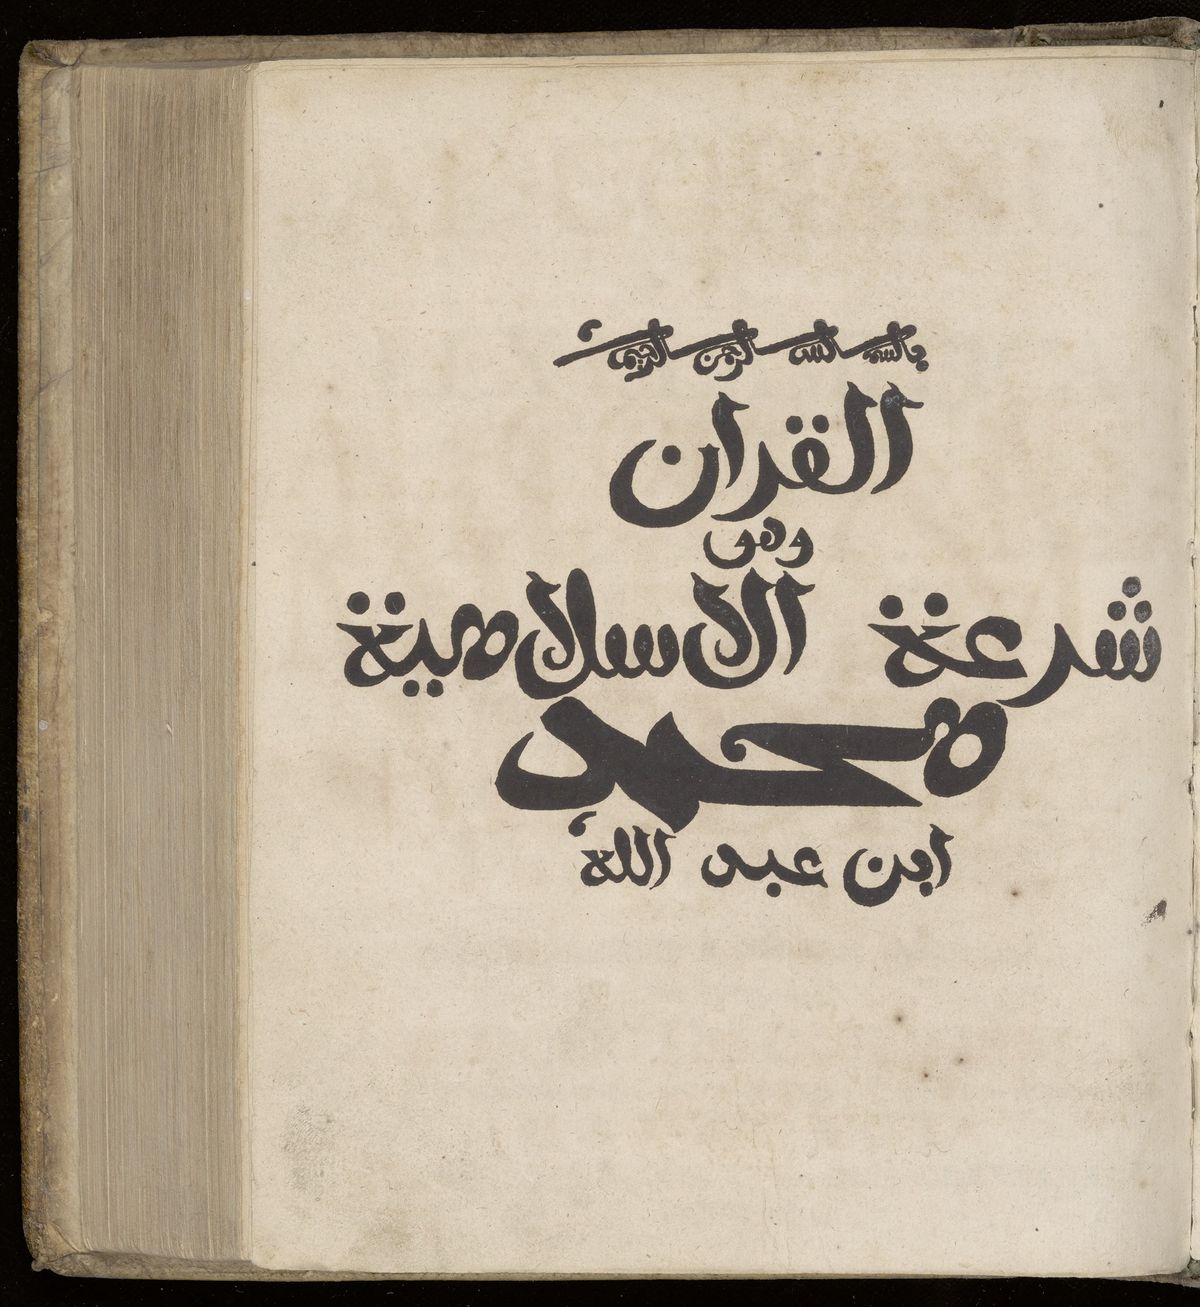 بالسم الله الرحمن الرحيم
القران
وهو
شرعة الاسلامية
محمد
ابن عبد الله